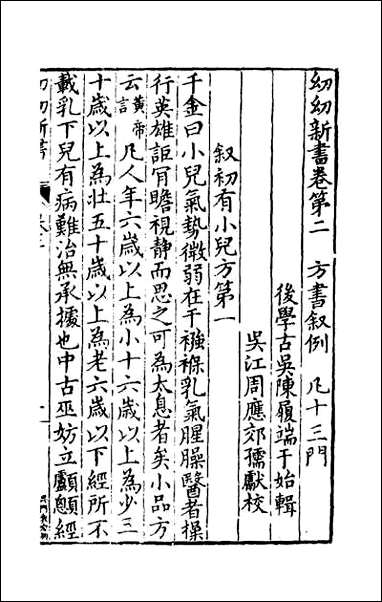 幼幼新書卷第二　方書叙例　凡十三門
後學古吳陳履端于始輯
吳江周應郊孺獻校
叙初有小兒方第一
千金曰小兒氣勢微弱在于襁褓乳氣腥臊醫者操
行英雄詎肯瞻視靜而思之可為太息者矣小品方
云黃帝言凡人年六歲以上為小十六歲以上為少三
十歲以上為壯五十歲以上為老六歲以下經所不
載乳下兒有病難治無承據也中古巫妨立顱顖經
幼幼新書